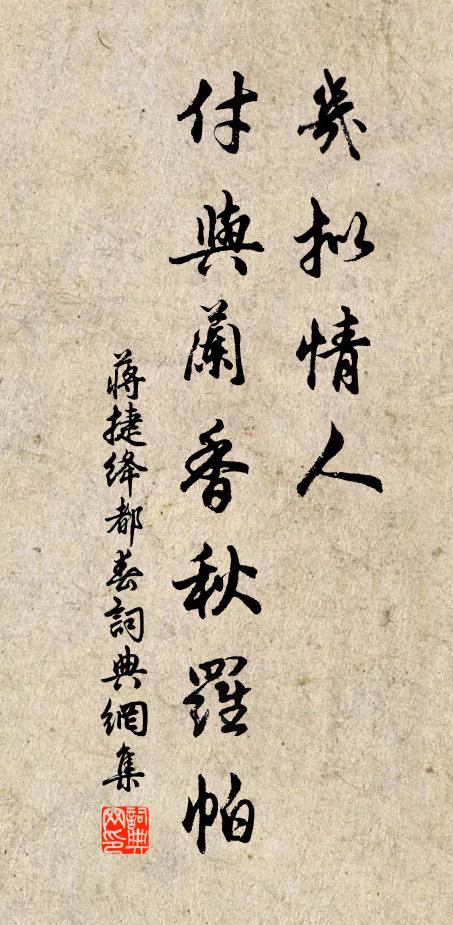 幾擬情人
付與蘭香秋羅帕
蔣捷絳都春詞典網集
詞典網印